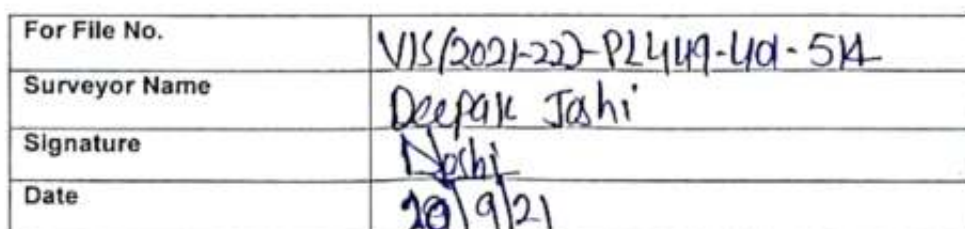 For File No. VIS(2021-22)-PL449-
Surveyor Name Deepak Joshi
Signature
Date 20/9/21